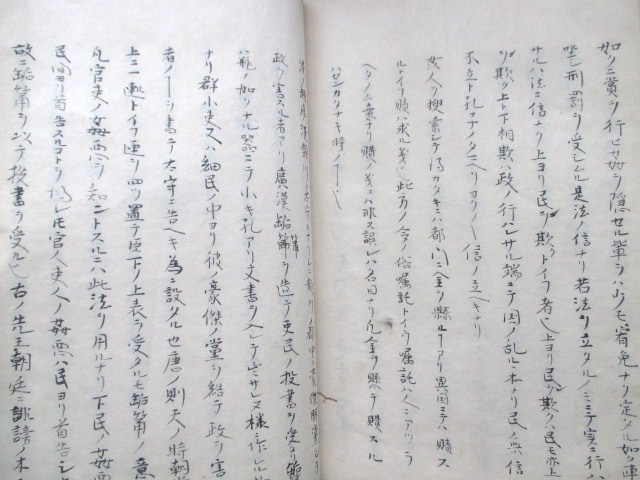 如クニ賞ヲ行ヒ姦ヲ隠セル輩ヲハ少モ宥免ナク定タル如ク連
坐ノ刑罰ヲ受シムル是法ノ信ナリ若法ヲ立タルノミニテ実ニ行ハ
サルハ法ニ信ナク上ヨリ民ヲ欺クトイフ者也上ヨリ民ヲ欺クハ民モ亦上
ヲ欺ク上下相欺ハ政ノ行ハレサル端ニテ国ノ乱ル本ナリ民ノ無信
不立ト孔子ノタマヘリヨクノ信ノ立ヘキナリ
人ヲ捜索シテ得カタキニハ都ハニ金ヲ縣ルアリ異国ニテハ購ス
ルトイフ購ハ求ル義也此方ノ今ノ俗嘱託トイフ嘱託ハ人ニアツラ
ヘタノム意ナリ購ノ義ニハ非ス誤レハ名目ナリ凡金ヲ懸テ購スル
ハセンカタナキ時ノ
政ヲ害スル者アリ廣漢缿筩ヲ造テ吏民ノ投書ヲ受ク缿
ハ瓶ノ如クナル器ニテ小キ孔アリ文書ヲ入レテ出サレヌ様ニ作レル
ナリ群小吏又ハ細民ノ中ヨリ彼ノ豪傑ノ黨ヲ結テ政ヲ害
者ノヲ書テ太守ニ告ヘキ為ニ設タル也唐ノ則天ノ時朝
上ニ一トイフ ヲ四ツ置テ臣下ノ上表ヲ受タルモ缿筩ノ意
凡官吏ノ姦悪ヲ知ントスルニハ此法ヲ用ルナリ下民ノ姦
民間ヨリ首告スルコトヲ レモ官人吏人ノ姦悪ハ民ヨリ首告シ
故ニ缿筩ヲ以テ投書ヲ受ル也古ノ先王朝廷ニ誹謗ノ木